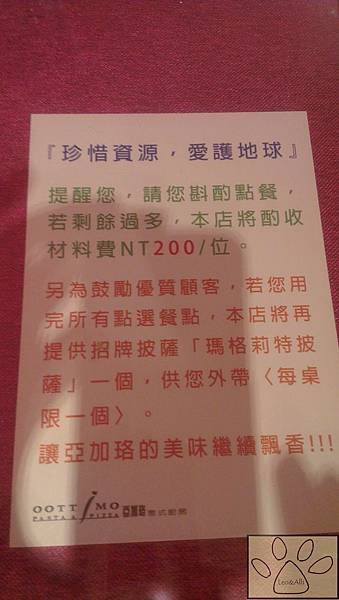 『珍惜資源，愛護地球』
提醒您，請您斟酌點餐，
若剩餘過多，本店將酌收
材料費NT200/位。
另為鼓勵優質顧客，若您用
完所有點選餐點，本店將再
提供招牌披薩「瑪格莉特披
薩」一個，供您外帶〈每桌
限一個〉。
讓亞加珞的美味繼續飄香!!!
OOTTIMO 亞加珞 意式廚房
PASTA & PIZZA
Leo&Alli